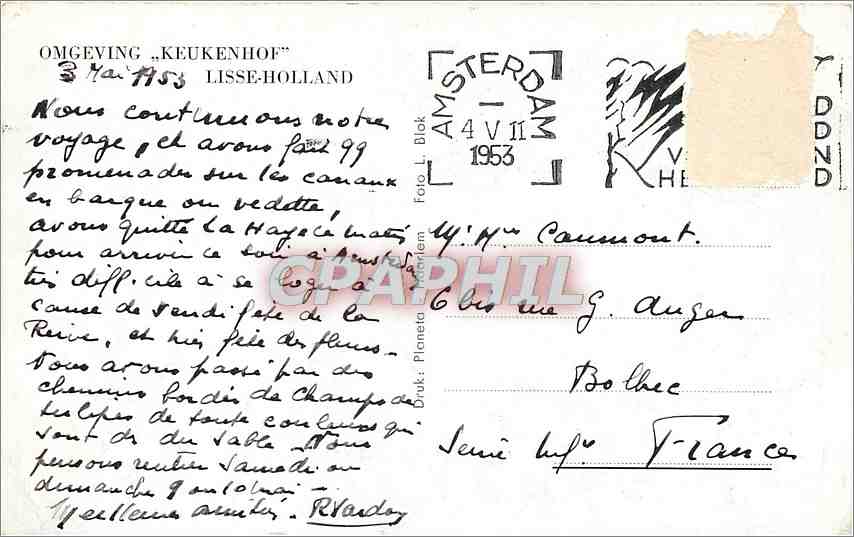 OMGEVING „KEUKENHOF"
3 Mai 1953 LISSE-HOLLAND
Nous continuons notre
voyage, et avons fait 99
promenades sur les canaux
en barque ou vedette,
avons quitté La Haye ce matin
pour arriver ce soir à Amsterdam
très difficile à se loger à
cause de Vendi fête de la
Reine, et hier fête des fleurs -
Nous avons passé par des
chemins bordés de Champs de
tulipes de toute couleurs qui
sont ds du sable - Nous
pensons rentrer Samedi ou
dimanche 9 ou 10 mai -
Meilleures amitiés. R Vardon
Druk: Planeta Haarlem Foto L. Blok
AMSTERDAM
4 V 11
1953
V
HE
D
DD
ND
CPAPHIL
Mr Mme Caumont.
6 bis rue G. Auger
Bolbec
Seine Infre France